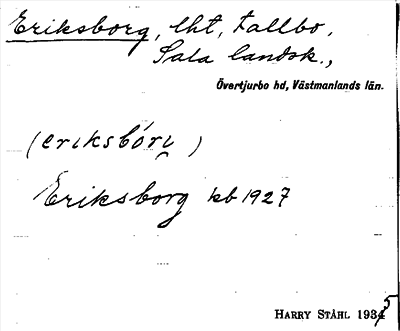 Eriksborg, lht, Fallbo,
Sala landsk.,
Övertjurbo hd, Västmanlands län.
(eriksbóry)
Eriksborg kb 1927
HARRY STÅHL 1935